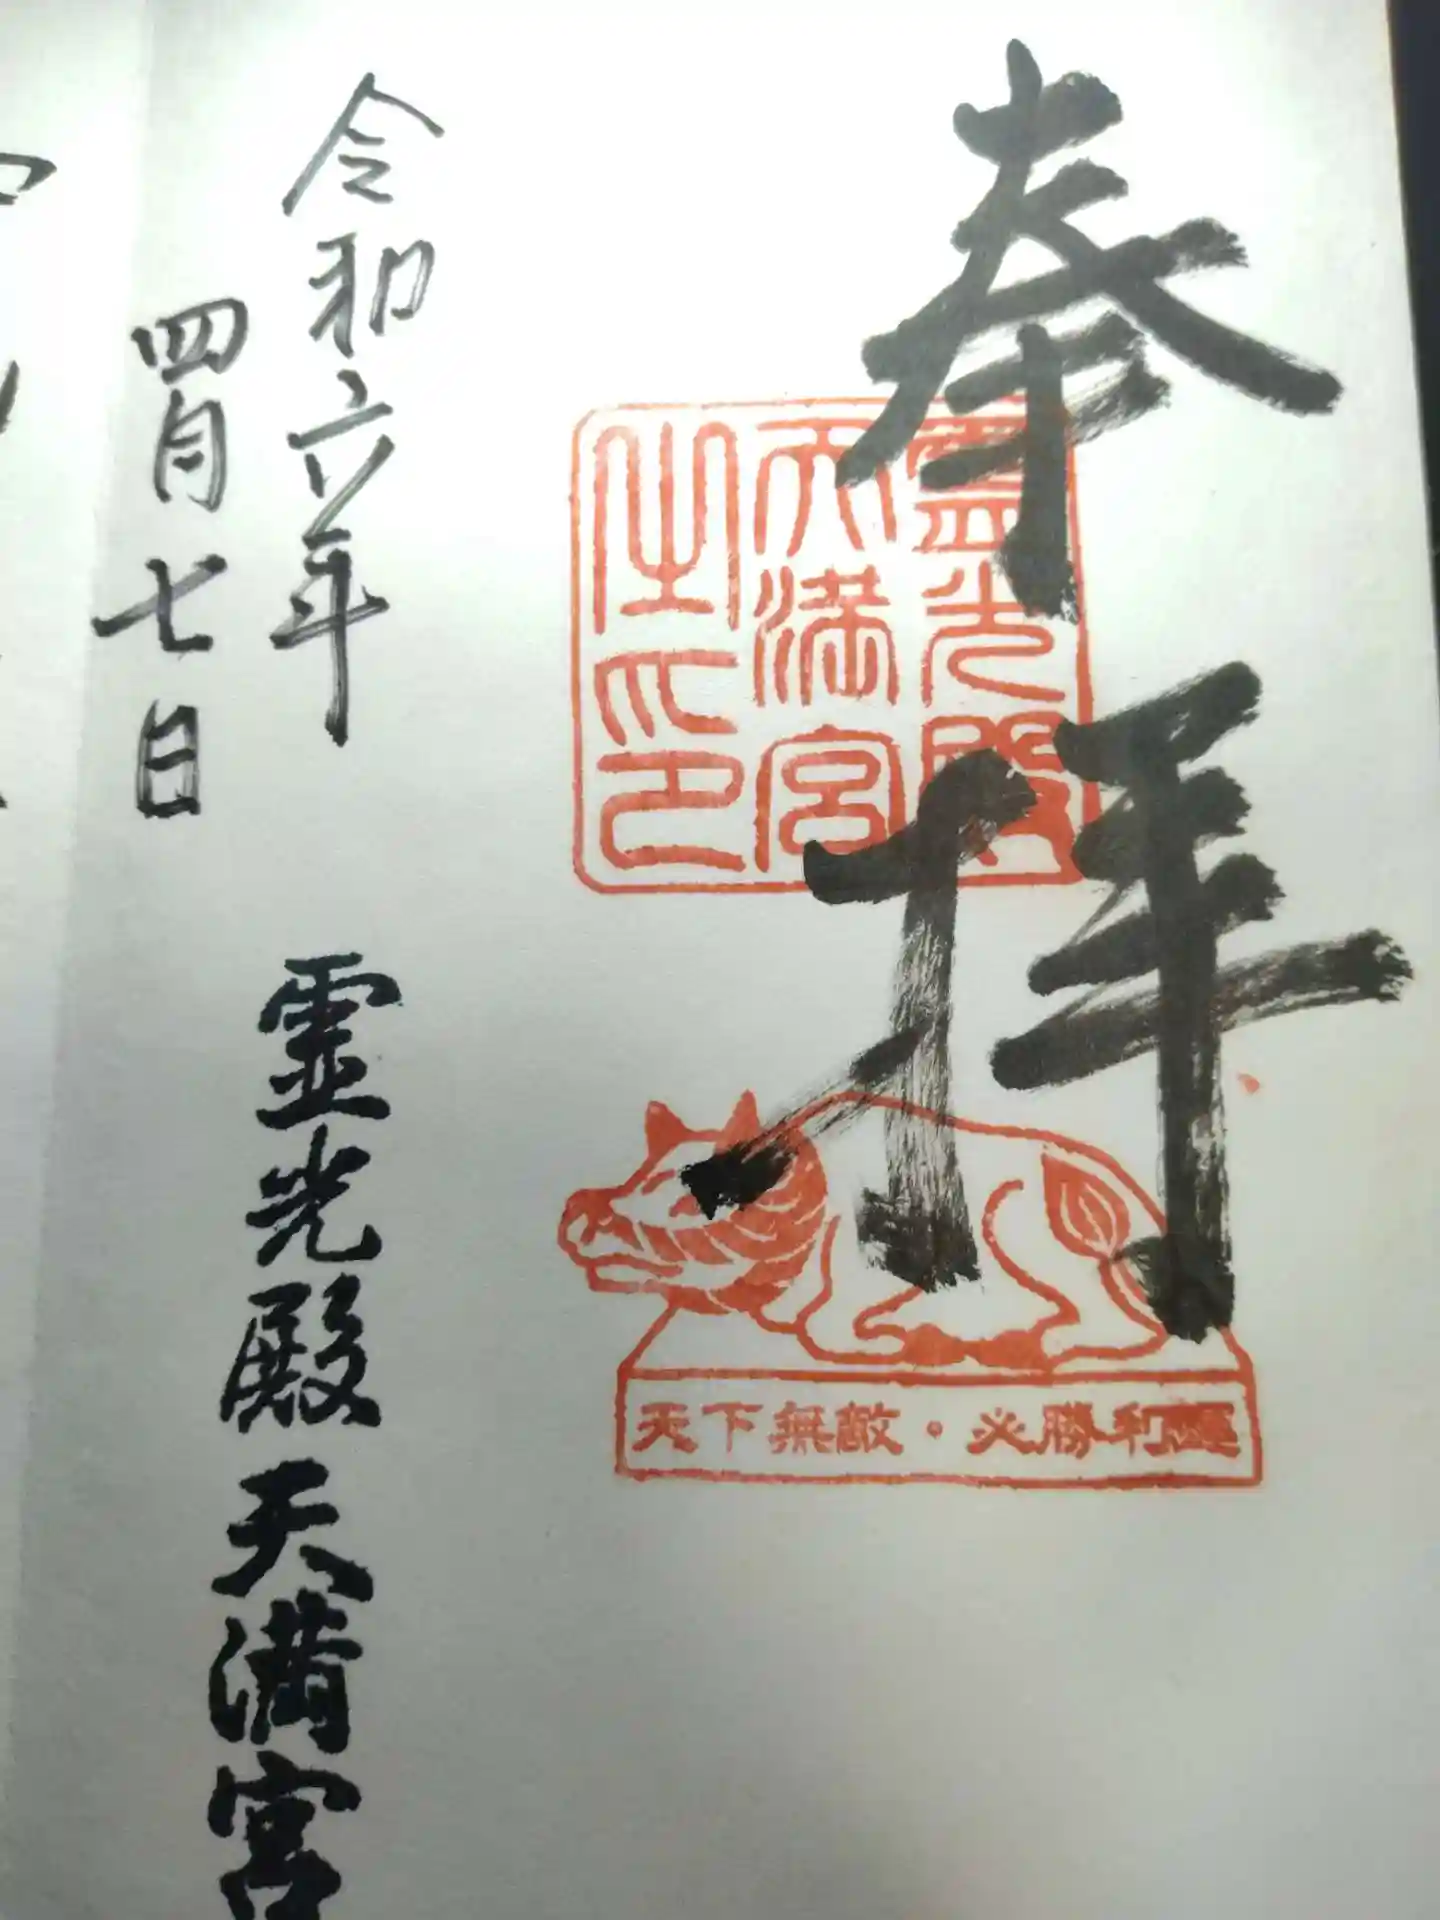 奉拝
靈光殿
天満宮
之印
天下無敵・必勝利運
令和六年
四月七日
霊光殿天満宮